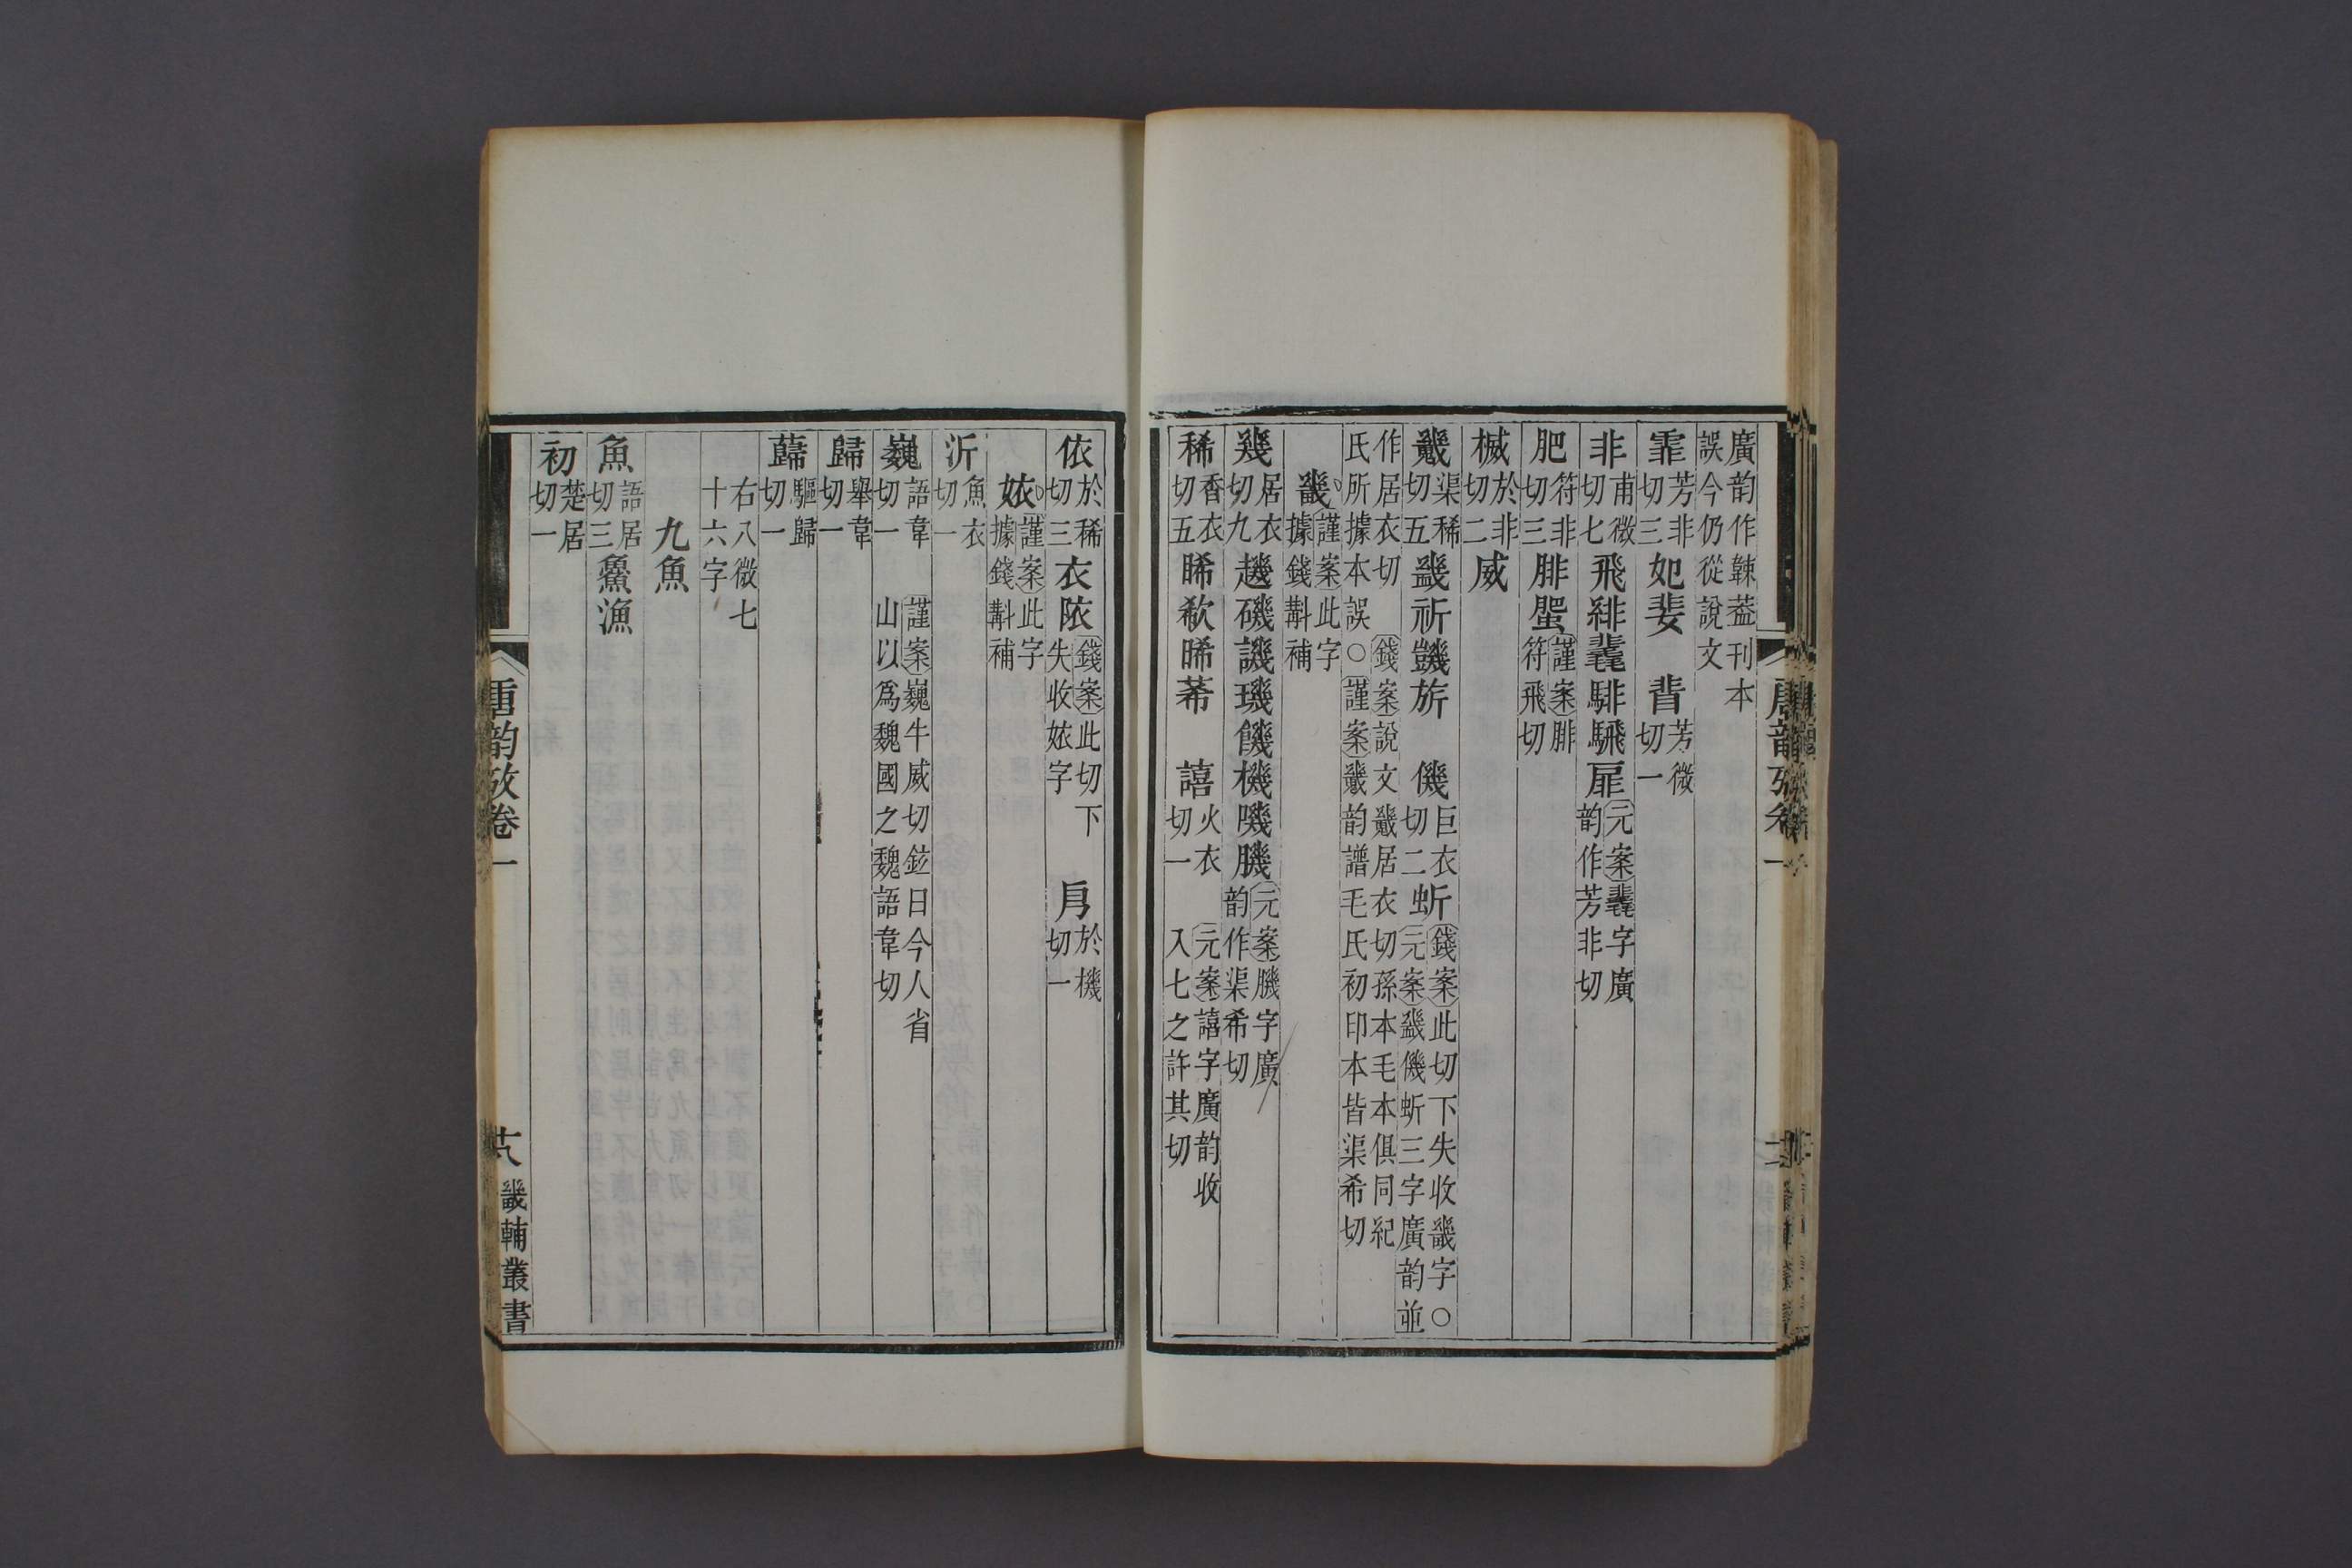 廣韵作䩶葢刊本
誤今仍從說文
霏芳非切三妃婓 䓈芳微切一
非甫微切七飛緋䨽騑騛扉元案䨽字廣韵作芳非切
肥符非切三腓蜰謹案腓符飛切
楲於非切二威
㡬渠稀切五䥓祈𧯯旂 僟巨衣切二蚚錢案此切下失收畿字○元案䥓僟蚚三字廣韵並
作居衣切 錢案說文㡬居衣切孫本毛本俱同紀
氏所據本誤○謹案㡬韵譜毛氏初印本皆渠希切
畿謹案此字據錢斠補
幾居衣切九趨磯譏璣饑機嘰䤒元案䤒字廣韵作渠希切
稀香衣切五睎欷晞莃 譆火衣切一 元案譆字廣韵收入七之許其切
依於稀切三衣陒錢案此切下失收㛄字 㐆於機切一
㛄謹案此字據錢斠補
沂魚衣切一
巍語韋切一 謹案巍牛威切鉉曰今人省山以爲魏國之魏語韋切
歸舉韋切一
蘬驅歸切一
右八微七十六字
九魚
魚語居切三䲆漁
初楚居切一
唐韵攷卷一
十八
畿輔叢書